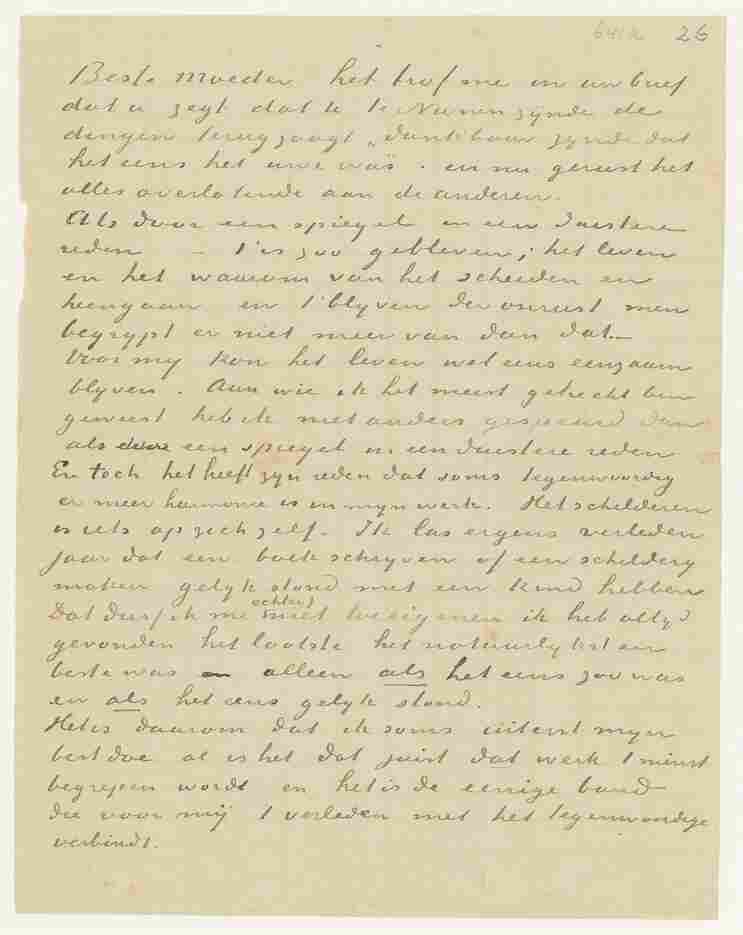 641a 26
Beste Moeder het trof me in uw brief
dat u zegt dat te te Nunen zynde de
dingen terugzaagt „dankbaar zynde dat
het eens het uwe was". en nu gerust het
alles overlatende aan de anderen.
Als door een spiegel in een duistere
reden – t is zoo gebleven; het leven
en het waarom van het scheiden en
heengaan en t blyven der onrust men
begrypt er niet meer van dan dat.–
Voor my kon het leven wel eens eenzaam
blyven. Aan wie ik het meest gehecht ben
geweest heb ik niet anders gespeurd dan
als door een spiegel in een duistere reden
En toch het heeft zyn reden dat soms tegenwoordig
er meer harmonie is in myn werk. Het schilderen
is iets op zich zelf. Ik las ergens verleden
jaar dat een boek schryven of een schildery
maken gelyk stond met een kind hebben
Dat durf ik me echter niet toeeigenen ik heb altyd
gevonden het laatste het natuurlykst en
beste was – alleen als het eens zou was
en als het eens gelyk stond.
Het is daarom dat ik soms uiterst myn
best doe al is het dat juist dat werk t minst
begrepen wordt en het is de eenige band
die voor mij t verleden met het tegenwoordige
verbindt.